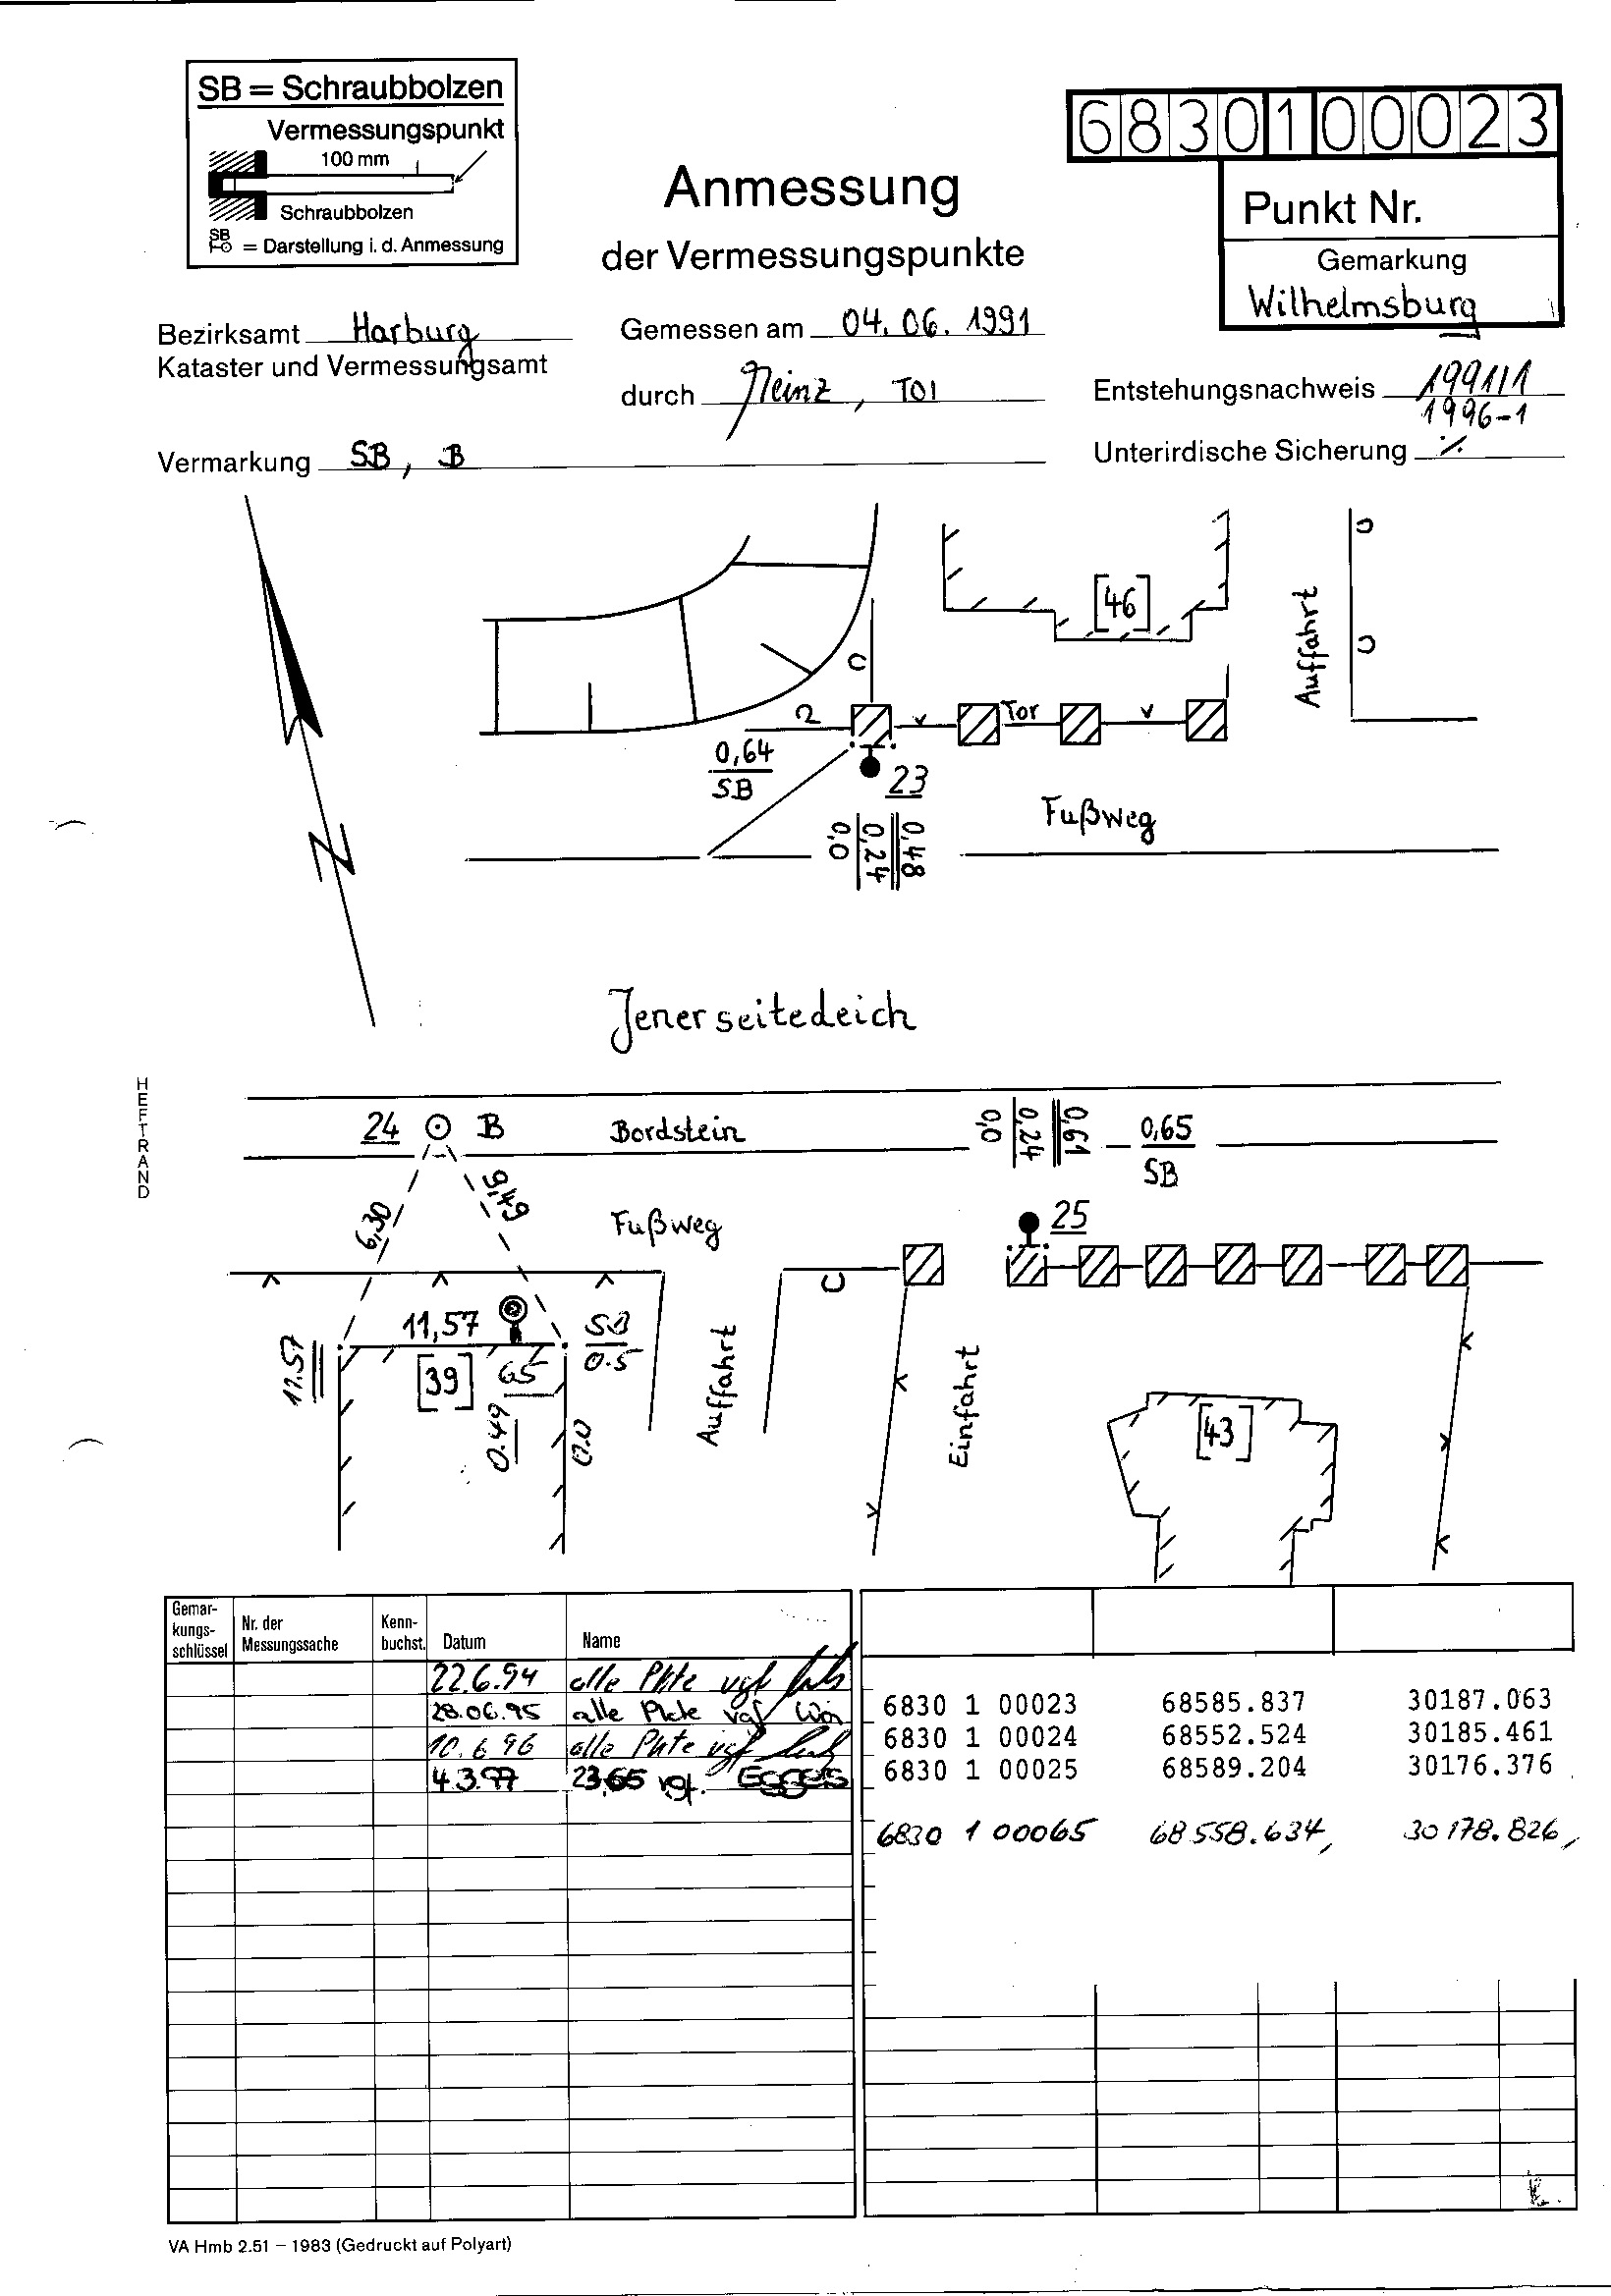 SB = Schraubbolzen
Vermessungspunkt
100 mm
Schraubbolzen
SB
= Darstellung i. d. Anmessung
6830100023
Punkt Nr.
Gemarkung
Wilhelmsburg
Anmessung
der Vermessungspunkte
Bezirksamt Harburg
Kataster und Vermessungsamt
Gemessen am 04.06.1991
durch Heinz, TOI
Entstehungsnachweis 1991/1
1996-1
Unterirdische Sicherung ./.
Vermarkung SB, B
[46]
Auffahrt
Tor
0,64
SB
23
Fußweg
0,0
0,24
0,48
N
Jenerseitedeich
HEFTRAND
24 B
Bordstein
0,0
0,24
0,61
0,65
SB
6,30
9,49
Fußweg
25
11,57
11.57
SB
0.5
[39]
65
0.49
0.0
Auffahrt
Einfahrt
[43]
Gemar-
kungs-
schlüssel
Nr. der
Messungssache
Kenn-
buchst.
Datum
Name
22.6.94 alle Pkte vgf
28.06.95 alle Pkte vgf
10.6.96 alle Pkte vgf
4.3.97 23,65 vgf. Eggers
6830 1 00023 68585.837 30187.063
6830 1 00024 68552.524 30185.461
6830 1 00025 68589.204 30176.376
6830 1 00065 68558.634 30178.826
VA Hmb 2.51 – 1983 (Gedruckt auf Polyart)